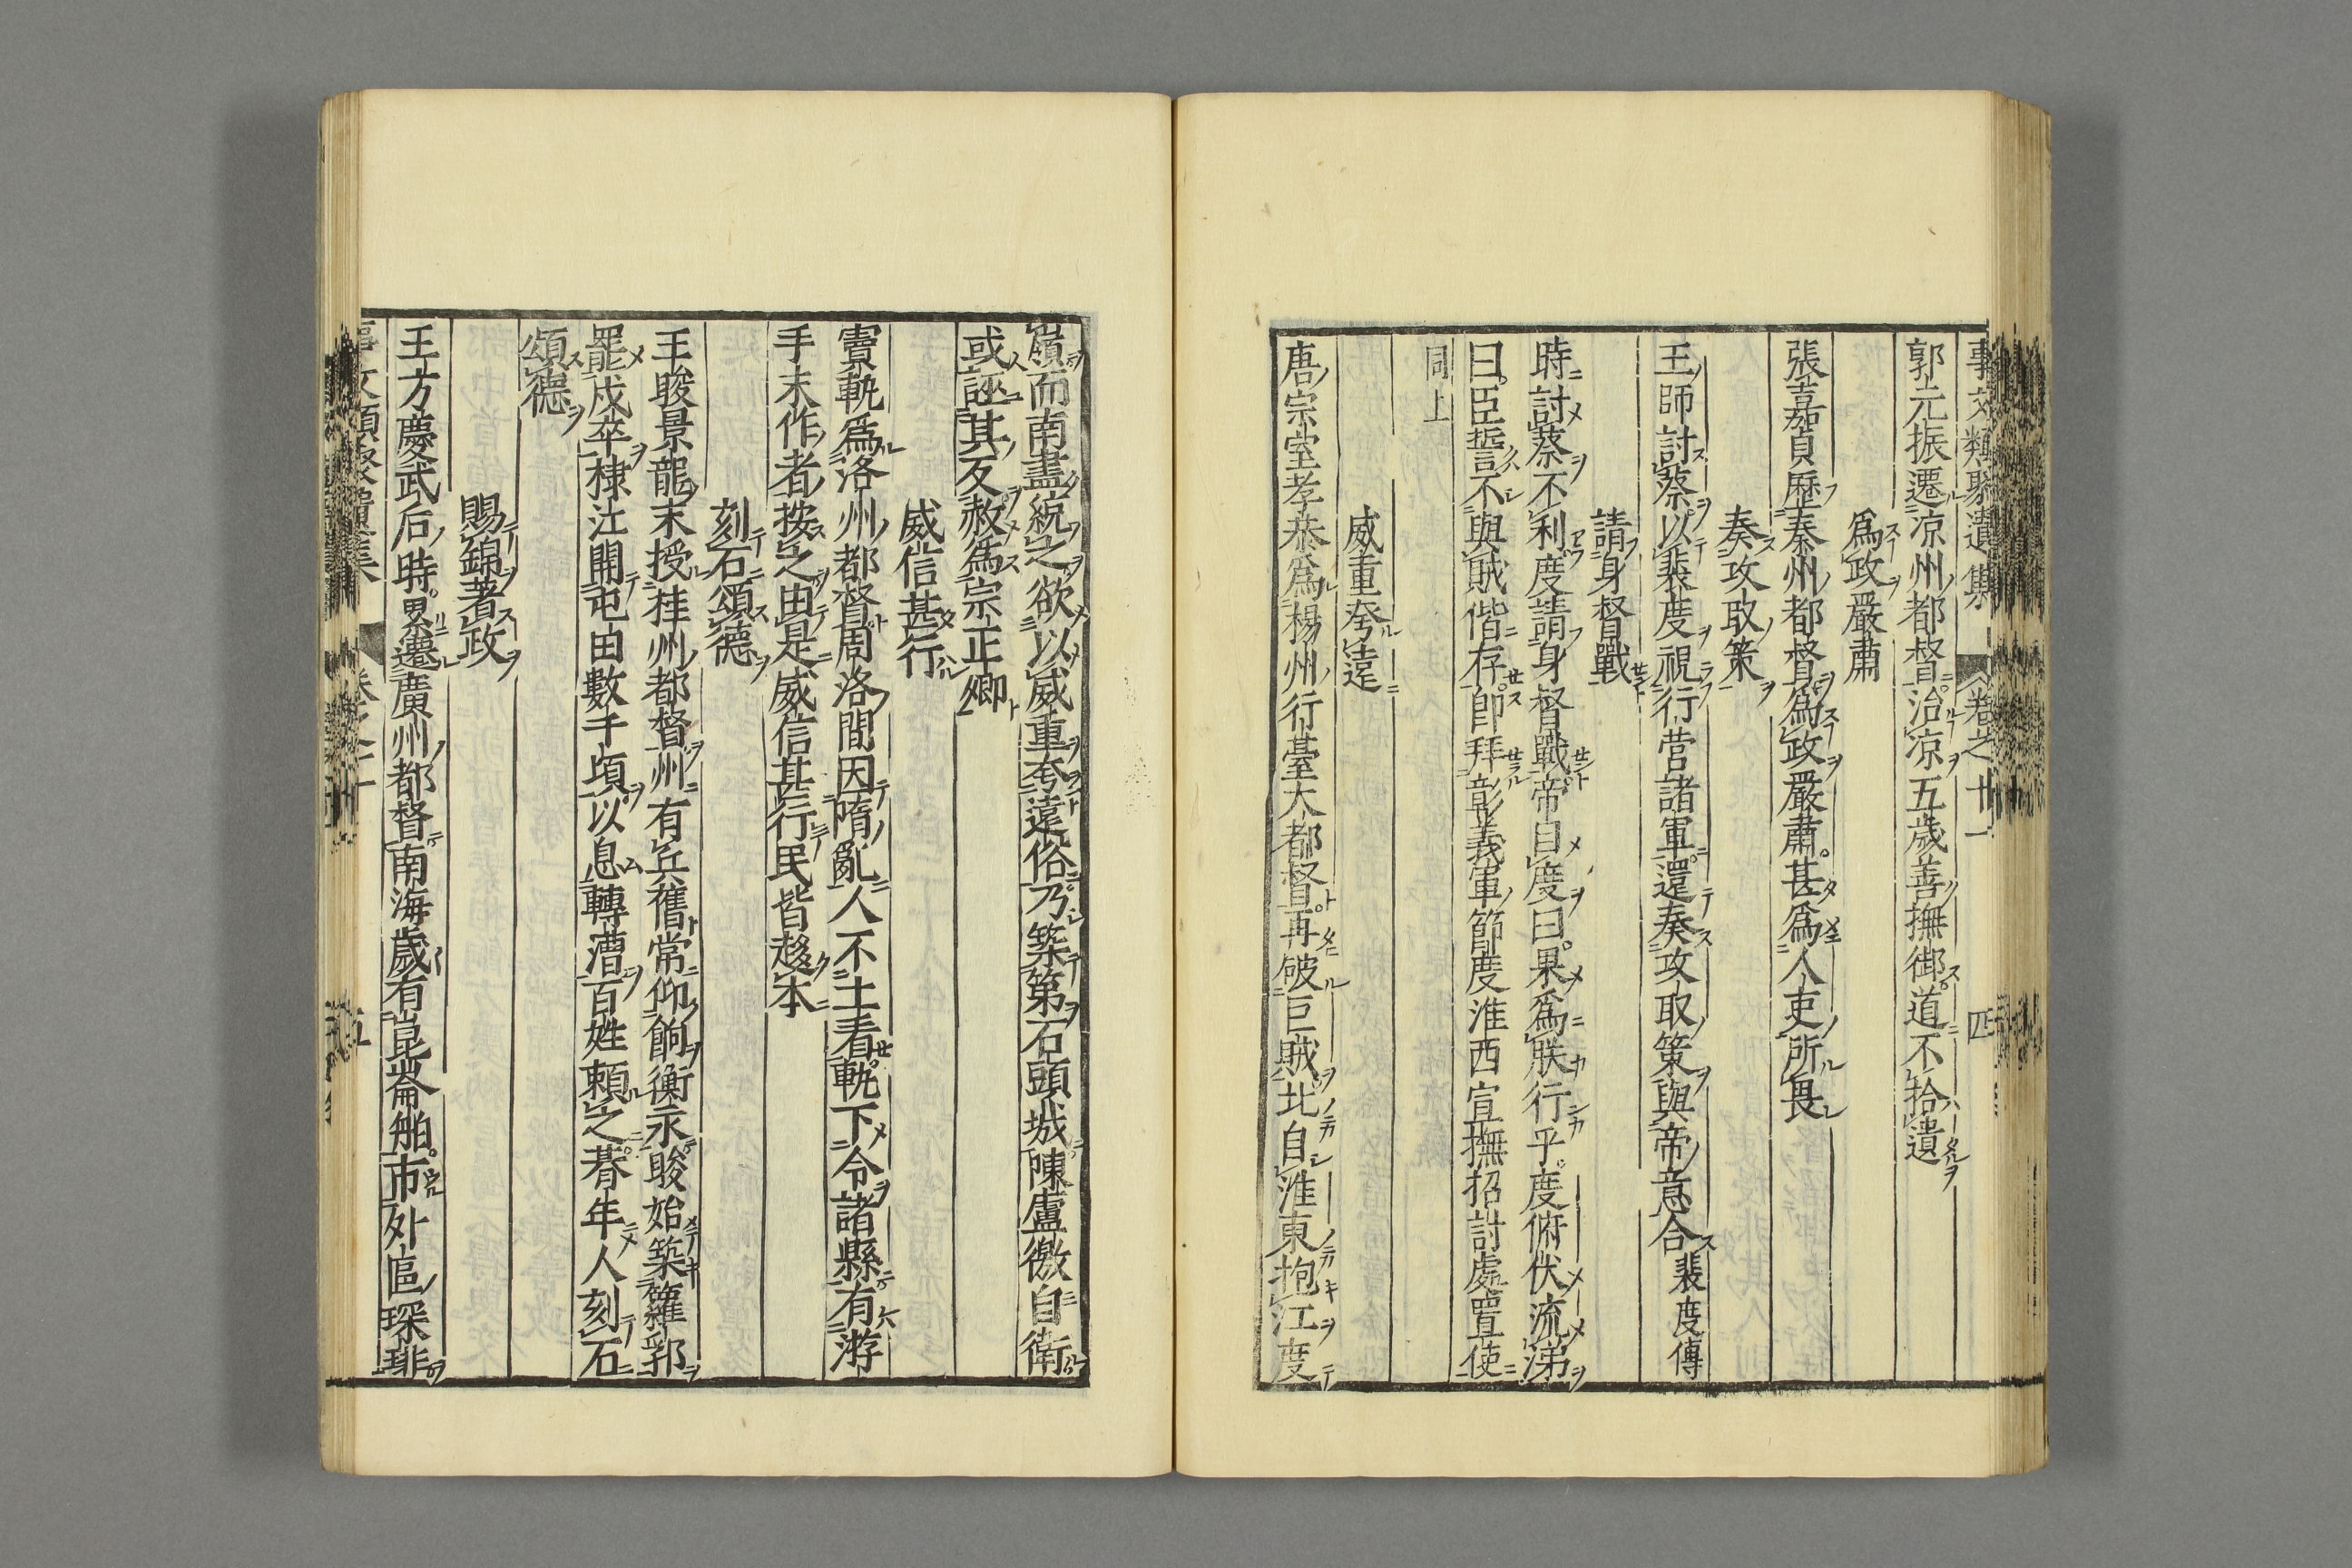 事文類聚遺集 卷之十一 四
郭元振遷凉州都督治凉五歲善撫御道不拾遺
爲政嚴肅
張嘉貞歷秦州都督爲政嚴肅甚爲人吏所畏
奏攻取策
王師討蔡以裴度視行营諸軍還奏攻取策與帝意合裴度傳
請身督戰
時討蔡不利度請身督戰帝目度曰果爲朕行乎度俯伏流涕
曰臣誓不與賊偕存卽拜彰義軍節度淮西宣撫招討處置使
同上
威重夸遠
唐宗室孝恭爲楊州行臺大都督再破巨賊北自淮東抱江度
嶺而南盡統之欲以威重夸遠俗乃築第石頭城陳廬徼自衛
或誣其反赦爲宗正卿
威信甚行
竇軌爲洛州都督周洛間因隋亂人不土着軌下令諸縣有游
手末作者按之由是威信甚行民皆趍本
刻石頌德
王晙景龍末授桂州都督州有兵舊常仰餉衡永晙始築籮郛
罷戍卒棣江開屯田數千頃以息轉漕百姓頼之朞年人刻石
頌德
賜錦著政
王方慶武后時累遷廣州都督南海歲有崑崙舶市外區琛琲